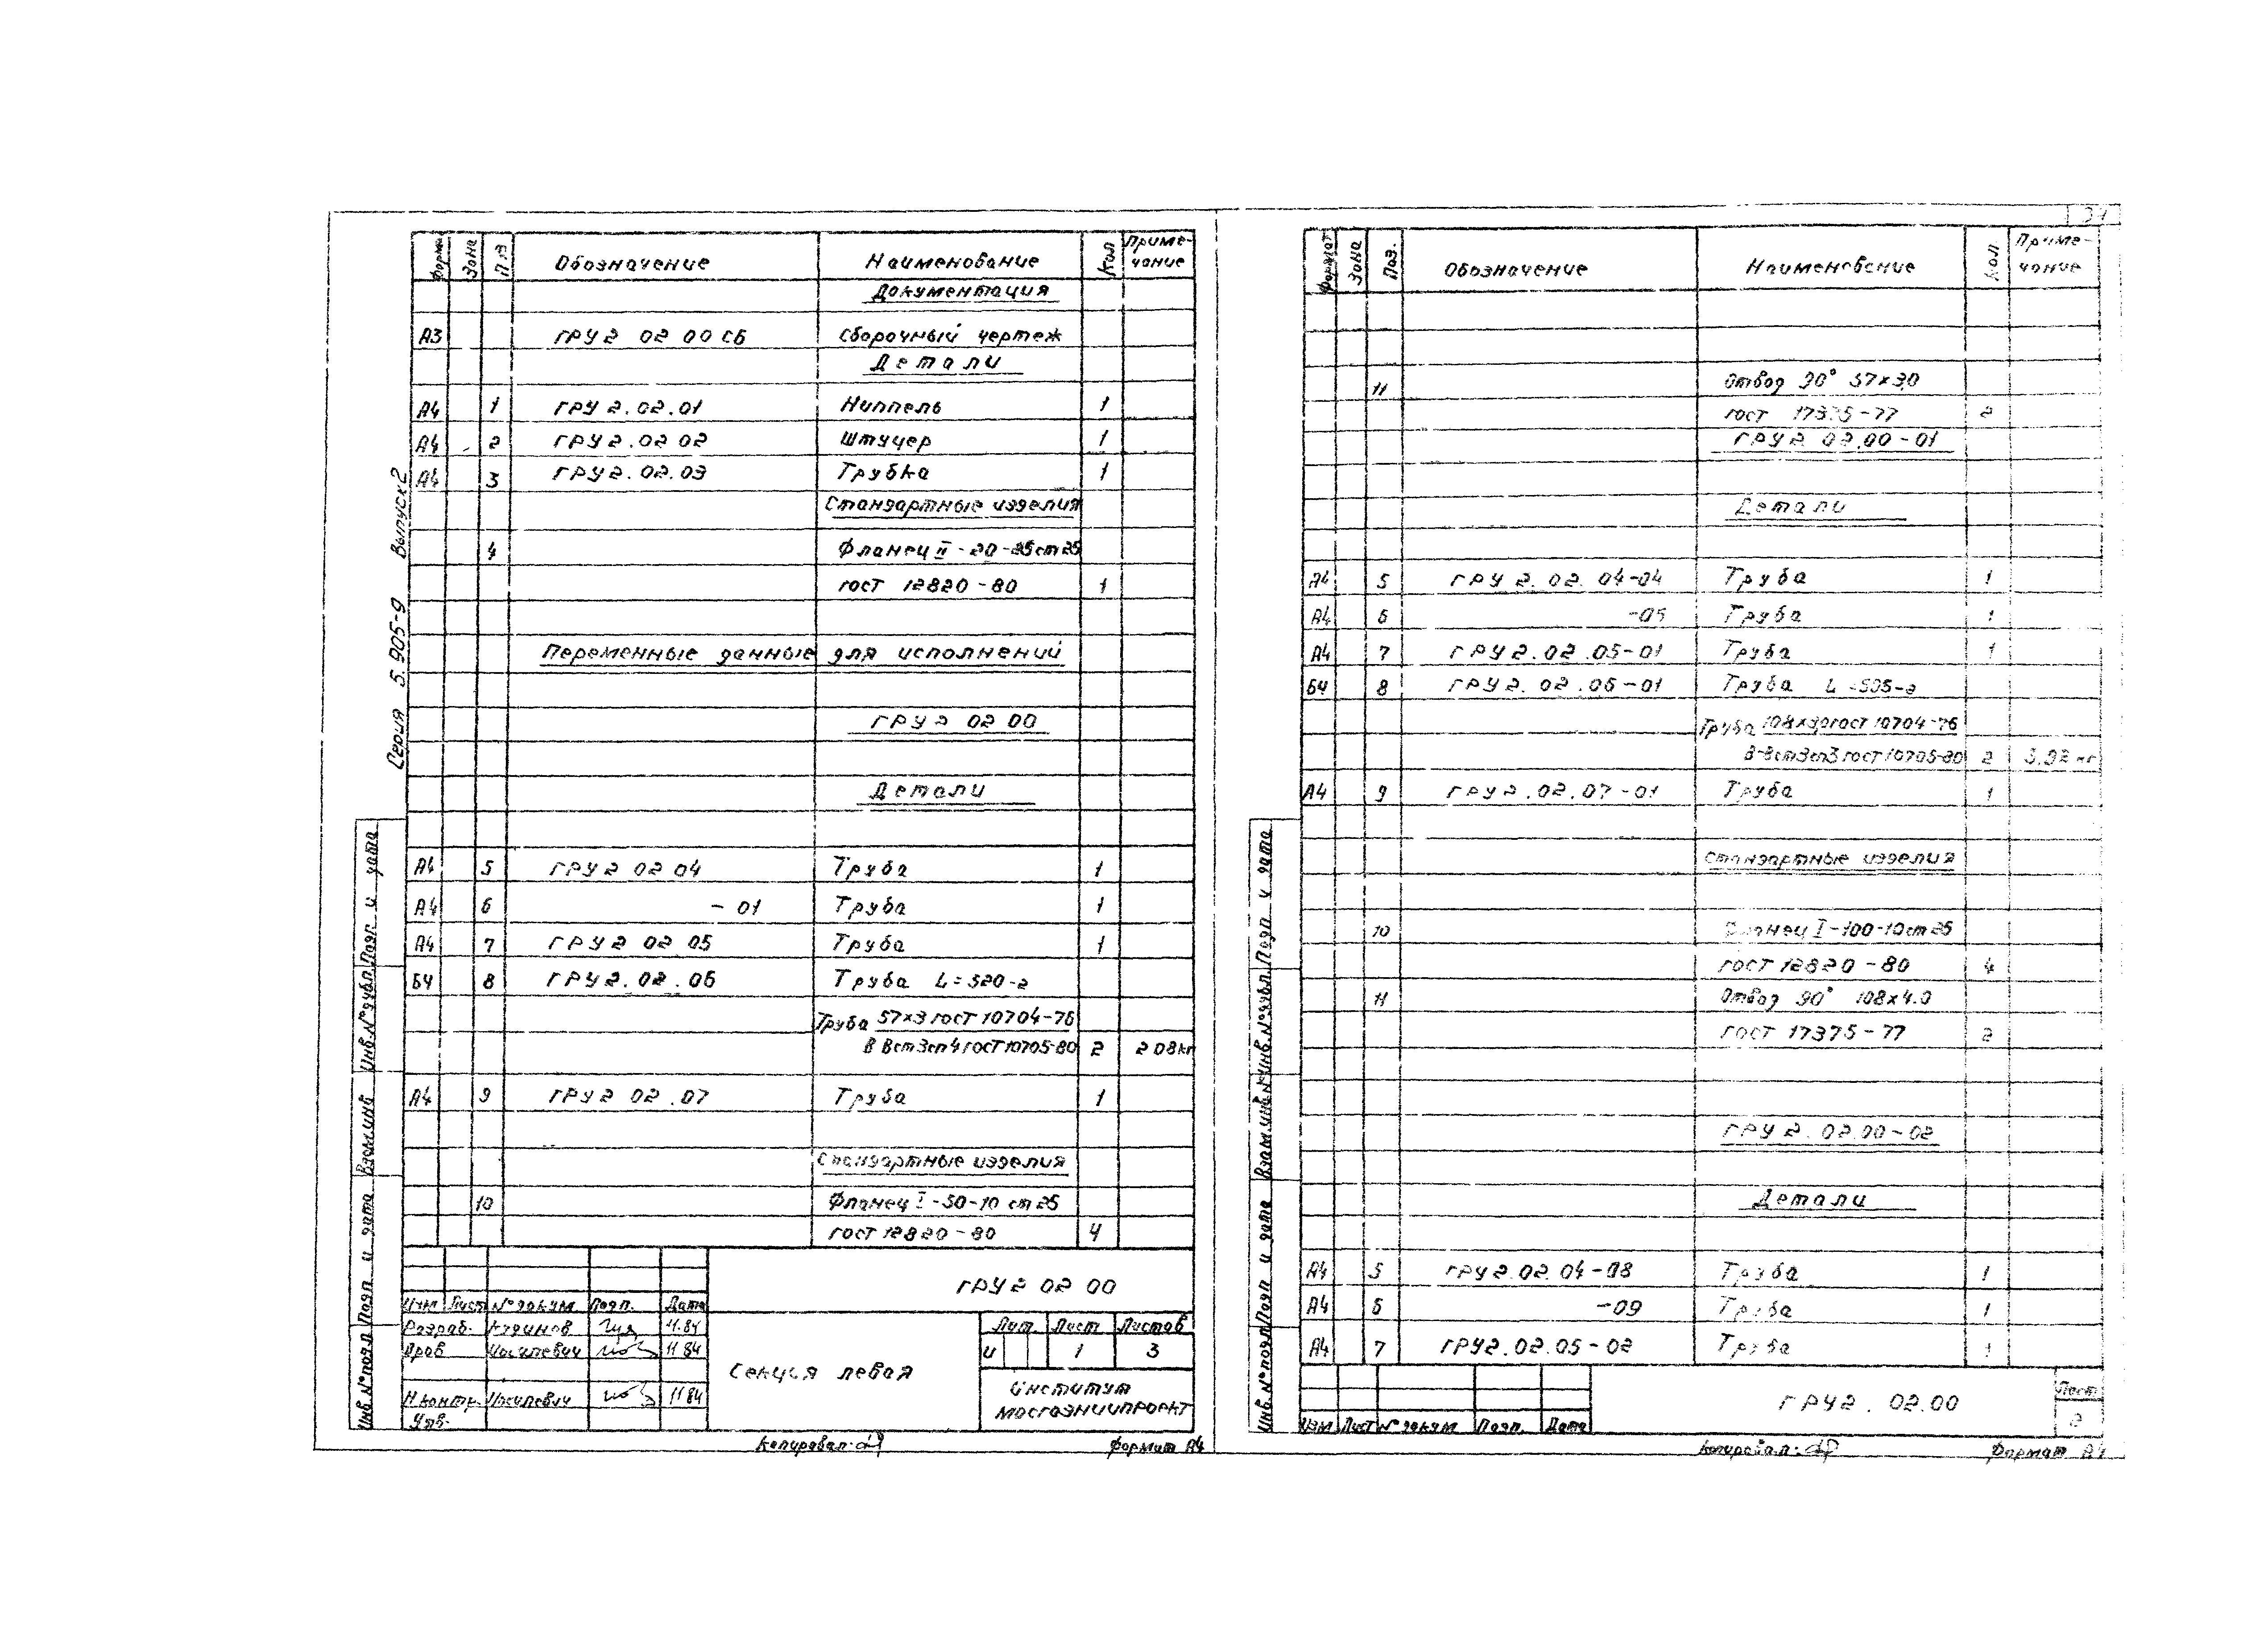 Серия 5.905-9 Выпуск 2
Форм. Зона Поз Обозначение Наименование Кол Приме-
чание
Документация
А3 ГРУ2 02 00 СБ Сборочный чертеж
Детали
А4 1 ГРУ2.02.01 Ниппель 1
А4 2 ГРУ2.02 02 Штуцер 1
А4 3 ГРУ2.02.03 Трубка 1
Стандартные изделия
4 Фланец II-20-25 ст 25
ГОСТ 12820-80 1
Переменные данные для исполнений
ГРУ2 02 00
Детали
А4 5 ГРУ2 02 04 Труба 1
А4 6 -01 Труба 1
А4 7 ГРУ2 02 05 Труба 1
БЧ 8 ГРУ2.02.06 Труба L=520-2
Труба 57х3 ГОСТ 10704-76
В Вст3сп4 ГОСТ 10705-80 2 2 08кг
А4 9 ГРУ2 02.07 Труба 1
Стандартные изделия
10 Фланец I-50-10 ст 25
ГОСТ 12820-80 4
Инв. № подл Подп и дата Взам. инв Инв. № дубл. Подп и дата
ГРУ2 02 00
Изм Лист № докум Подп. Дата
Разраб. 11.84
Пров 11 84
Н.контр. 11 84
Утв.
Секция левая
Лит. Лист Листов
и 1 3
Институт
Мосгазниипроект
Копировал: Формат А4
Формат Зона Поз. Обозначение Наименование Кол Приме-
чание
11 Отвод 90° 57х3,0
ГОСТ 17375-77 2
ГРУ2 02.00-01
Детали
А4 5 ГРУ2.02.04-04 Труба 1
А4 6 -05 Труба 1
А4 7 ГРУ2.02.05-01 Труба 1
БЧ 8 ГРУ2.02.06-01 Труба L=505-2
Труба ГОСТ 10704-76
В-Вст3сп3 ГОСТ 10705-80 2 3.92 кг
А4 9 ГРУ2.02.07-01 Труба 1
Стандартные изделия
10 Фланец I-100-10 ст 25
ГОСТ 12820-80 4
11 Отвод 90° 108х4.0
ГОСТ 17375-77 2
ГРУ2.02.00-02
Детали
А4 5 ГРУ2.02.04-08 Труба 1
А4 6 -09 Труба 1
А4 7 ГРУ2.02.05-02 Труба 1
Инв. № подл Подп и дата Взам инв № Инв. № дубл. Подп и дата
Изм Лист № докум Подп. Дата
ГРУ2.02.00
Лист
2
Копировал: Формат А4